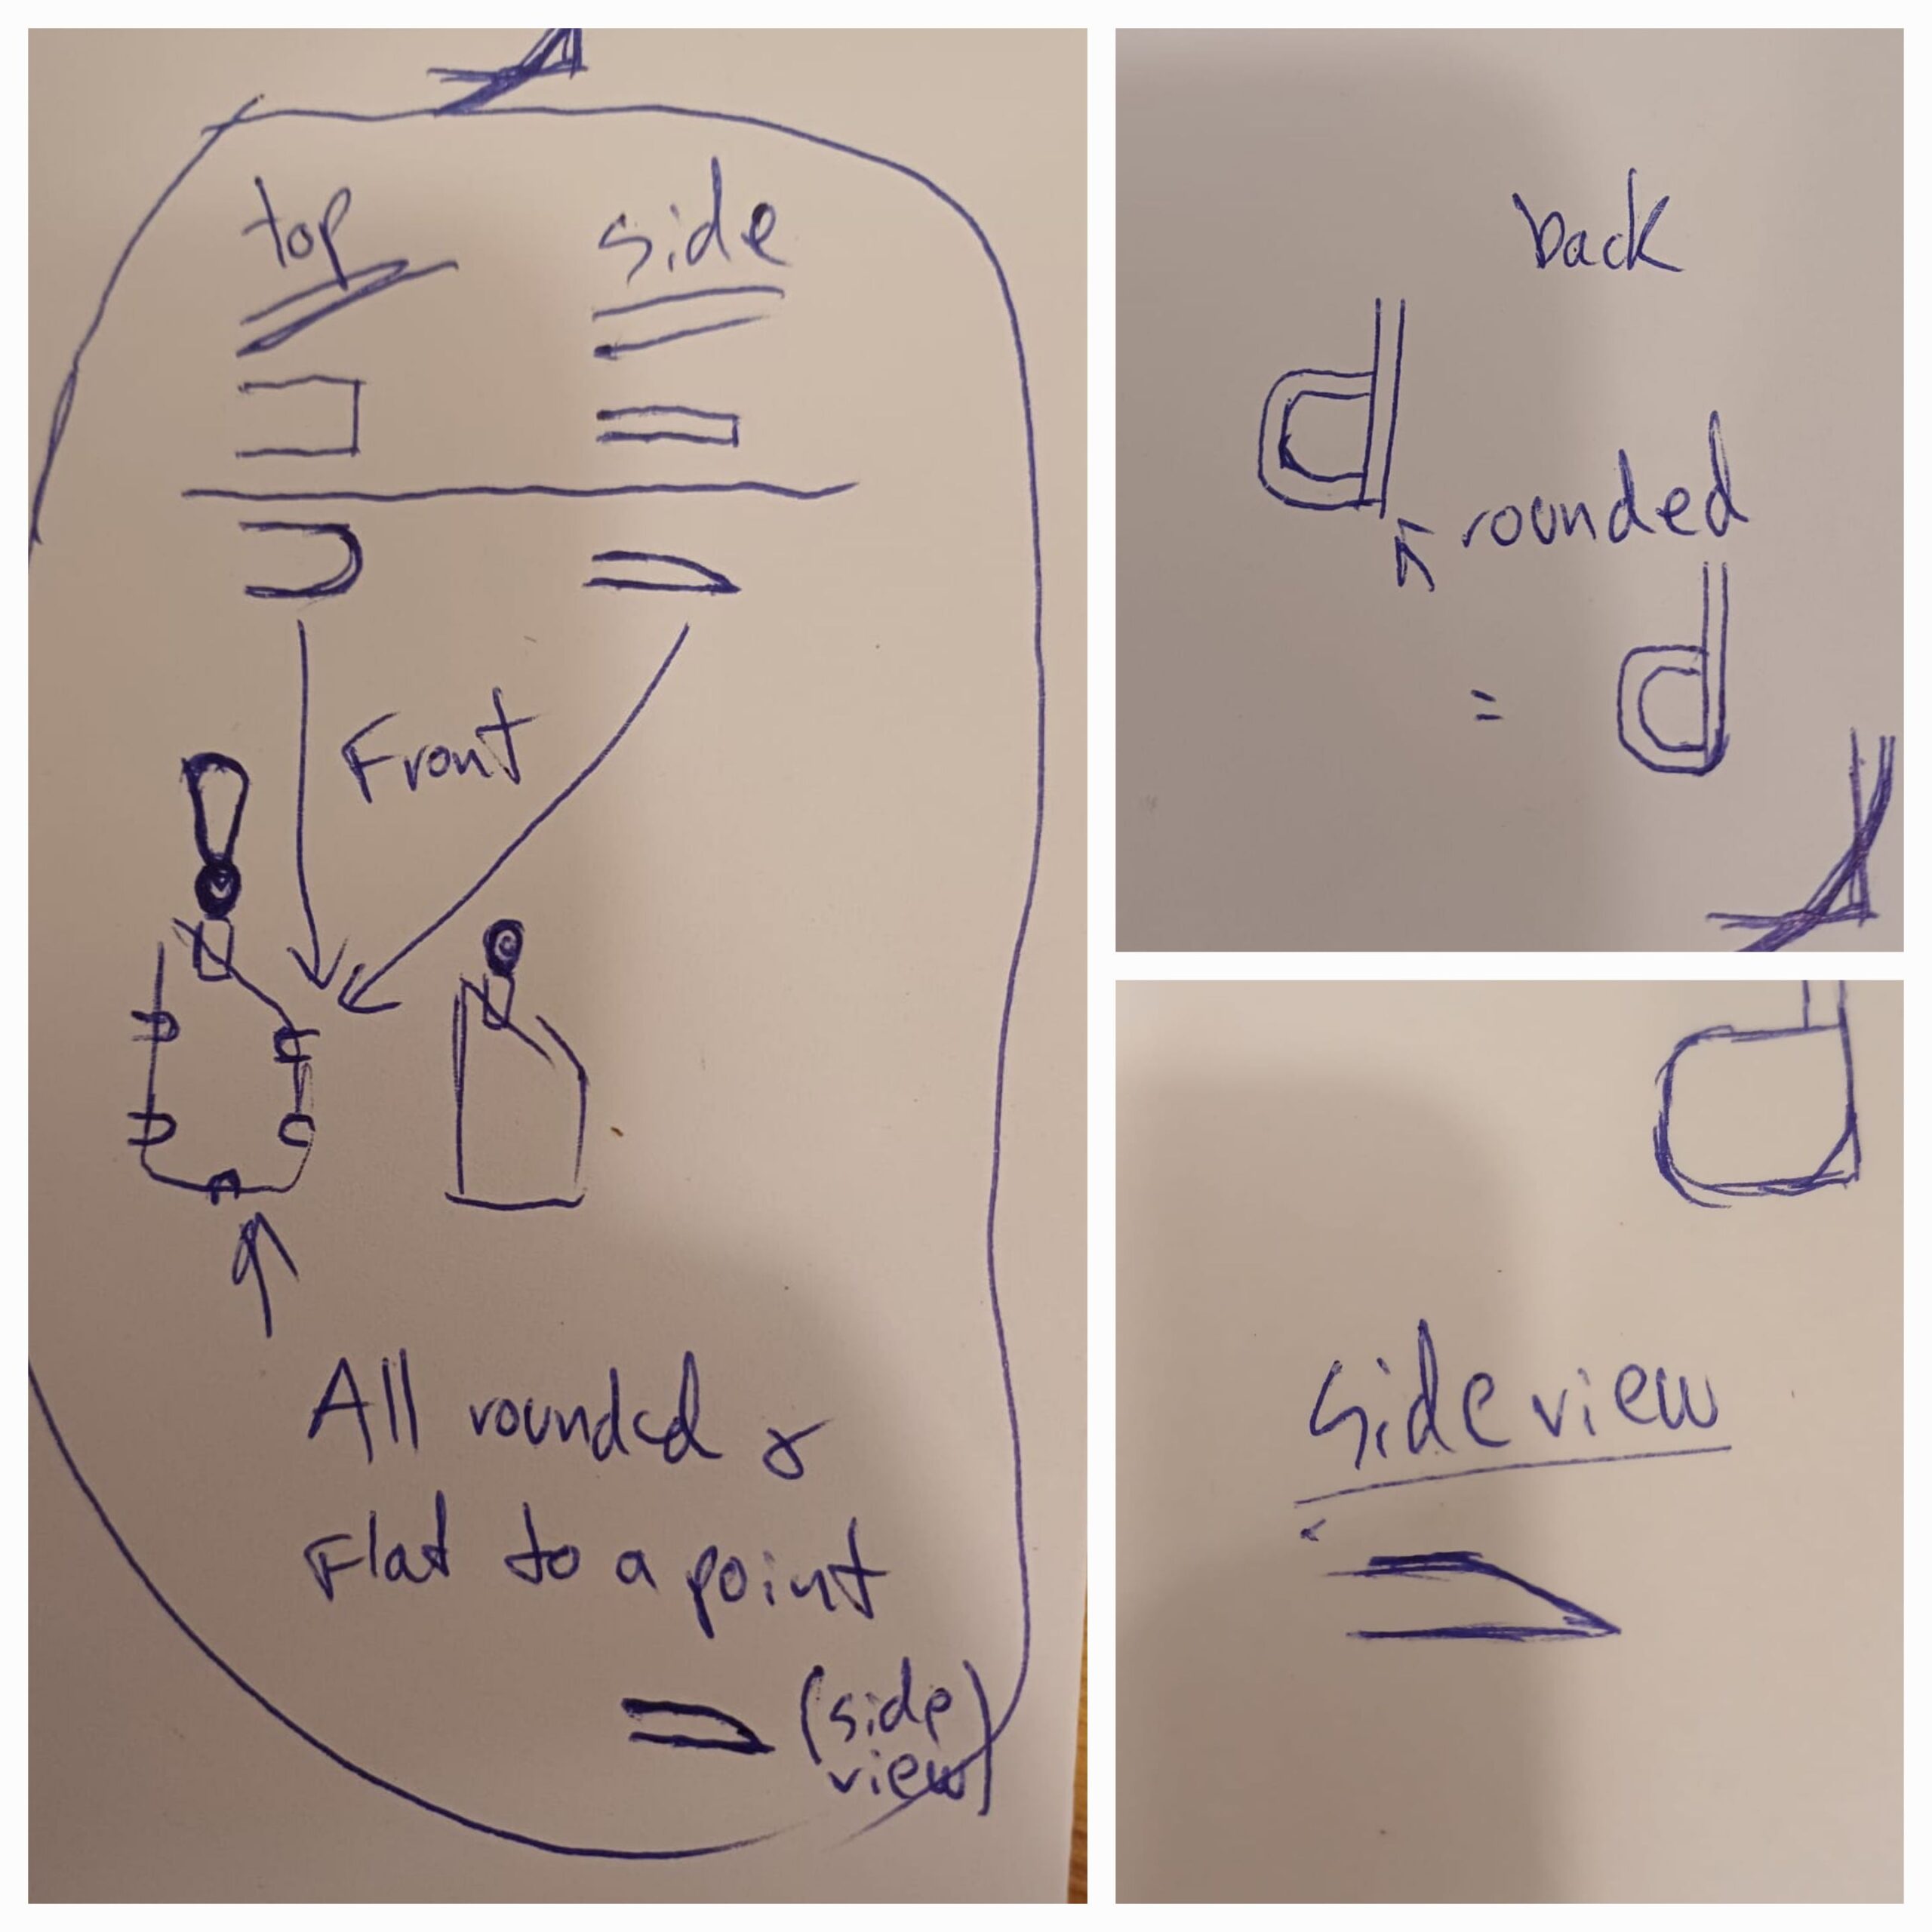 top side
Front
All rounded &
Flat to a point
(side
view)
back
rounded
=
Side view